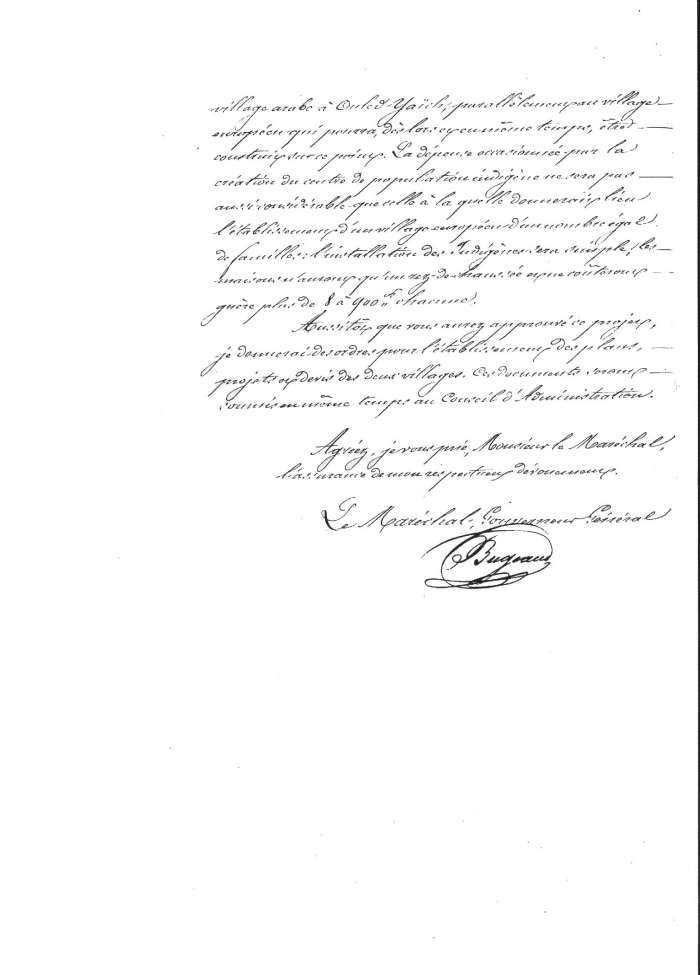 village arabe à Ouled Yaïch, parallèlement au village
européen qui pourra, dès lors et en même temps, être
construit sur ce point. La dépense occasionnée par la
création du centre de population indigène ne sera pas
aussi considérable que celle à la quelle donnerait lieu
l'établissement d'un village européen d'un nombre égal
de familles : l'installation des Indigènes sera simple, les
maisons n'auront qu'un rez-de-chaussée et ne coûteront
guère plus de 8 à 900 fr chacune.
Aussitôt que vous aurez approuvé ce projet,
je donnerai des ordres pour l'établissement des plans,
projets et devis des deux villages. Ces documents seront
soumis en même temps au Conseil d'Administration.
Agréez, je vous prie, Monsieur le Maréchal,
l'assurance de mon respectueux dévouement.
Le Maréchal, Gouverneur Général
Bugeaud